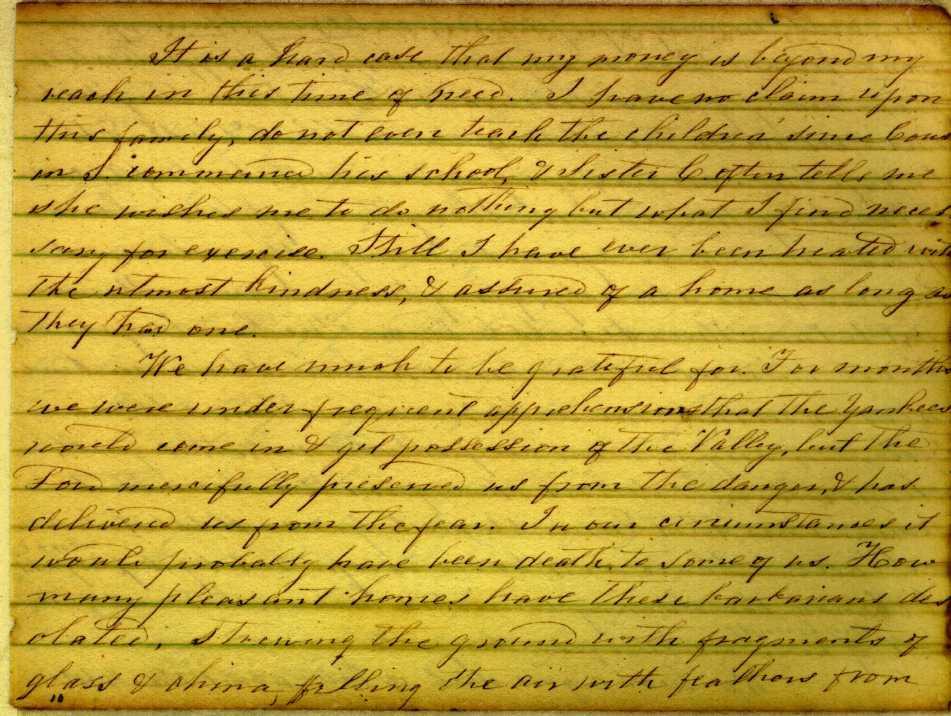 It is a hard case that my money is beyond my
reach in this time of need. I have no claim upon
this family, do not even teach the children since Cous
in J. commenced his school, & Sister C often tells me
she wishes me to do nothing but what I find neces
sary for exercise. Still I have ever been treated with
the utmost kindness, & assured of a home as long as
they had one.
We have much to be grateful for. For months
we were under frequent apprehensions that the Yankees
would come in & get possession of the Valley, but the
Lord mercifully preserved us from the danger, & has
delivered us from the fear. In our circumstances it
would probably have been death to some of us. How
many pleasant homes have these barbarians des
olated, strewing the ground with fragments of
glass & china, filling the air with feathers from